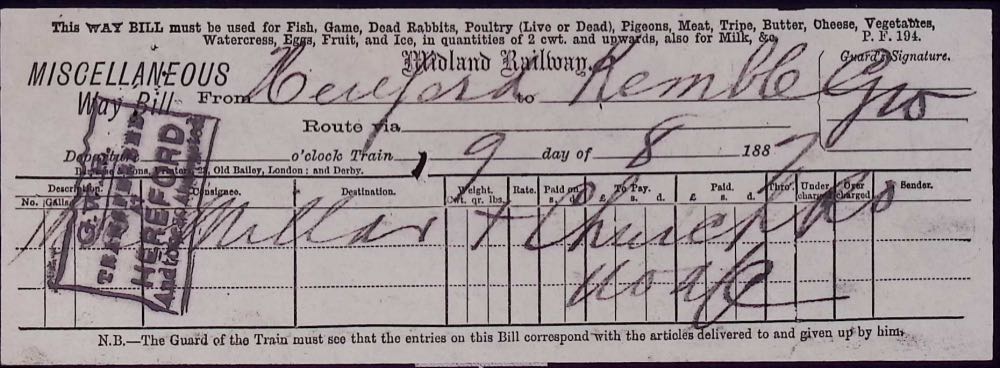 This WAY BILL must be used for Fish, Game, Dead Rabbits, Poultry (Live or Dead), Pigeons, Meat, Tripe, Butter, Cheese, Vegetables,
Watercress, Eggs, Fruit, and Ice, in quantities of 2 cwt. and upwards, also for Milk, &c. P. F. 194.
MISCELLANEOUS
Way Bill
Midland Railway.
Guard's Signature.
From Hereford to Kemble
Route via
Departure o'clock Train 9 day of 8 1887
Sons, Printers, Old Bailey, London; and Derby.
Description. Consignee. Destination. Weight. Rate. Paid on To Pay. Paid. Thro'. Under Over Sender.
No. Galls. Cwt. qr. lbs. s. d. £ s. d. £ s. d. charged charged
Millar Church
G. W.
HEREFORD
N.B.—The Guard of the Train must see that the entries on this Bill correspond with the articles delivered to and given up by him.